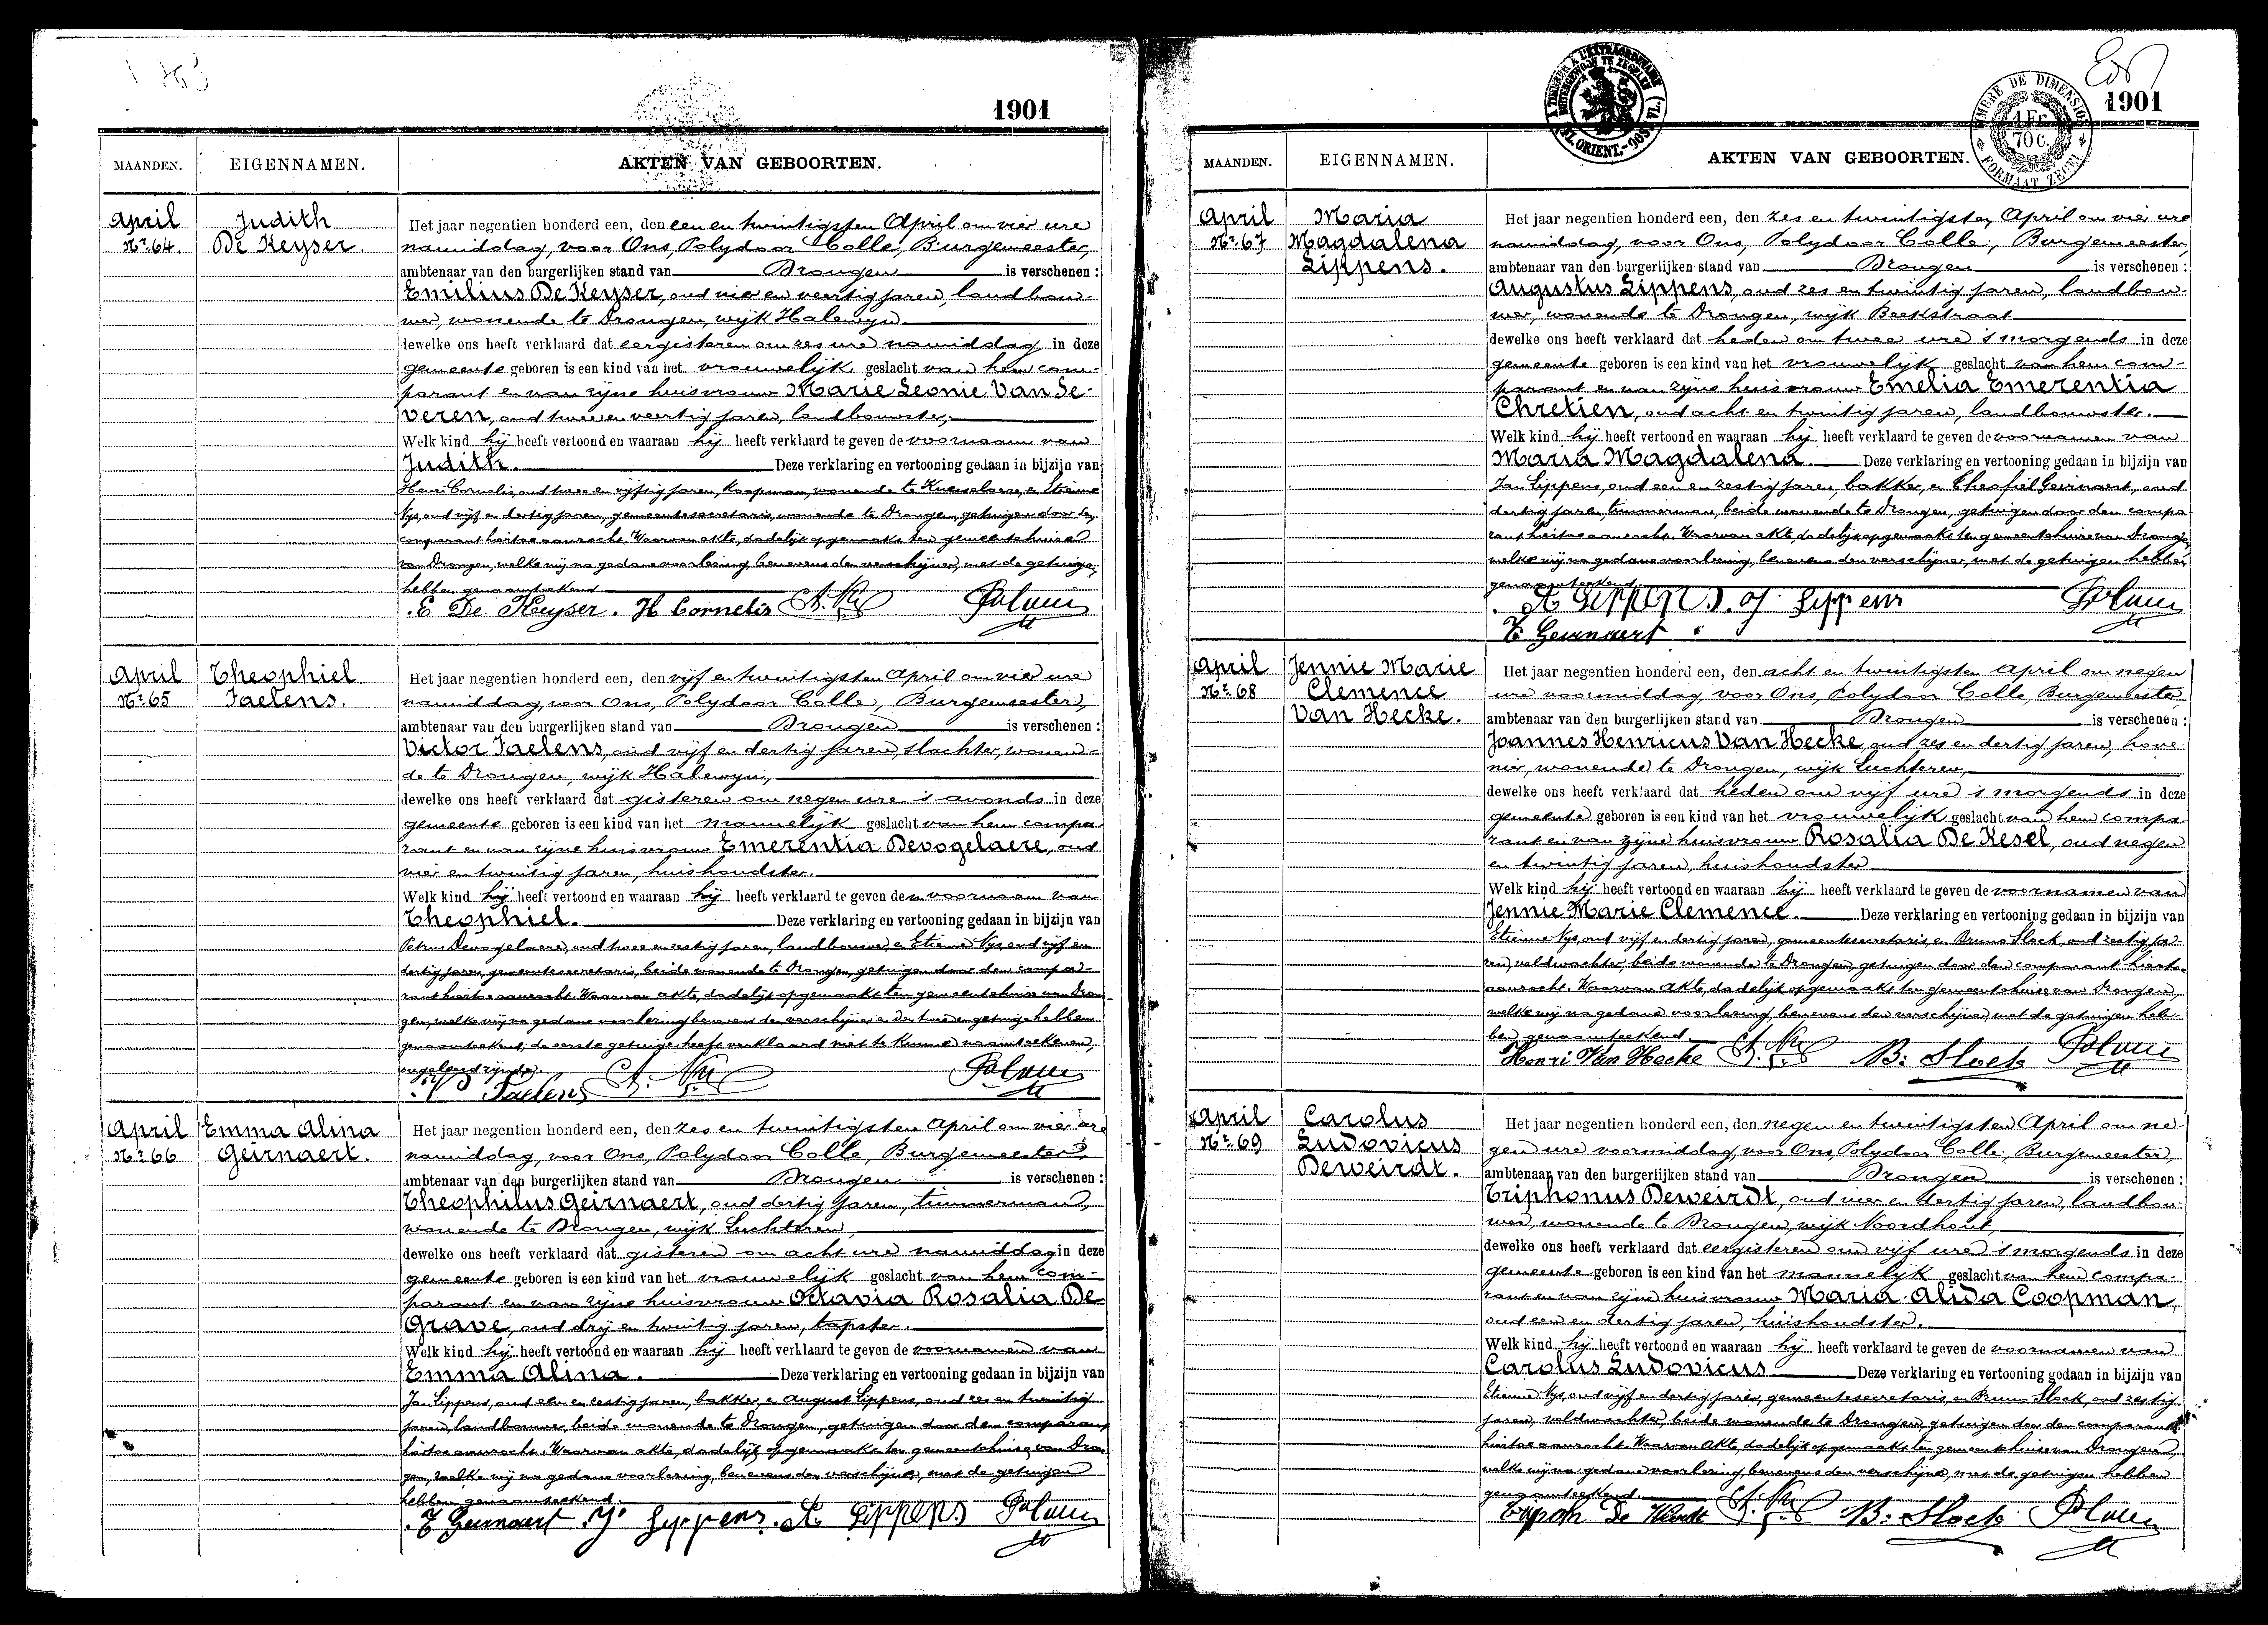 1901
MAANDEN. EIGENNAMEN. AKTEN VAN GEBOORTEN.
April
No. 64.
Judith
De Keyser.
Het jaar negentien honderd een, den een en twintigsten April om vier ure
namiddag, voor Ons, Polydoor Colle, Burgemeester,
ambtenaar van den burgerlijken stand van Drongen is verschenen :
Emilius De Keyser, oud vier en veertig jaren, landbou-
wer, wonende te Drongen, wijk Halewyn
dewelke ons heeft verklaard dat eergisteren om zes ure namiddag in deze
gemeente geboren is een kind van het vrouwelijk geslacht van hem com-
parant en van zijne huisvrouw Marie Leonie Van Se-
veren, oud twee en veertig jaren, landbouwster,
Welk kind hij heeft vertoond en waaraan hij heeft verklaard te geven de voornaam van
Judith. Deze verklaring en vertooning gedaan in bijzijn van
Henri Cornelis, oud twee en vijftig jaren, koopman, wonende te Knesselaere, en Etienne
Nys, oud vijf en dertig jaren, gemeentesecretaris, wonende te Drongen, getuigen door den
comparant hiertoe aanzocht. Waarvan akte, dadelijk opgemaakt ten gemeentehuize
van Drongen, welke wij na gedane voorlezing, benevens den verschijner, met de getuigen
hebben genaamteekend.
E De Keyser. H Cornelis
April
No. 65
Theophiel
Taelens.
Het jaar negentien honderd een, den vijf en twintigsten April om vier ure
namiddag, voor Ons, Polydoor Colle, Burgemeester,
ambtenaar van den burgerlijken stand van Drongen is verschenen :
Victor Taelens, oud vijf en dertig jaren, slachter, wonen-
de te Drongen, wijk Halewyn,
dewelke ons heeft verklaard dat gisteren om negen ure 's avonds in deze
gemeente geboren is een kind van het mannelijk geslacht van hem compa-
rant en van zijne huisvrouw Emerentia Devogelaere, oud
vier en twintig jaren, huishoudster.
Welk kind hij heeft vertoond en waaraan hij heeft verklaard te geven den voornaam van
Theophiel. Deze verklaring en vertooning gedaan in bijzijn van
Petrus Devogelaere, oud twee en zestig jaren, landbouwer, en Etienne Nys, oud vijf en
dertig jaren, gemeentesecretaris, beide wonende te Drongen, getuigen door den compa-
rant hiertoe aanzocht. Waarvan akte, dadelijk opgemaakt ten gemeentehuize van Dron-
gen, welke wij na gedane voorlezing benevens den verschijner en den tweeden getuige hebben
genaamteekend; de eerste getuige heeft verklaard niet te kunnen naamteekenen,
ongeleerd zijnde.
V Taelens
April
No. 66
Emma Alina
Geirnaert.
Het jaar negentien honderd een, den zes en twintigsten April om vier ure
namiddag, voor Ons, Polydoor Colle, Burgemeester,
ambtenaar van den burgerlijken stand van Drongen is verschenen :
Theophilus Geirnaert, oud dertig jaren, timmerman,
wonende te Drongen, wijk Luchteren,
dewelke ons heeft verklaard dat gisteren om acht ure namiddag in deze
gemeente geboren is een kind van het vrouwelijk geslacht van hem com-
parant en van zijne huisvrouw Octavia Rosalia De
Grave, oud drij en twintig jaren, tapster.
Welk kind hij heeft vertoond en waaraan hij heeft verklaard te geven de voornamen van
Emma Alina. Deze verklaring en vertooning gedaan in bijzijn van
Jan Lippens, oud een en zestig jaren, bakker, en August Lippens, oud zes en twintig
jaren, landbouwer, beide wonende te Drongen, getuigen door den comparant
hiertoe aanzocht. Waarvan akte, dadelijk opgemaakt ten gemeentehuize van Dron-
gen, welke wij na gedane voorlezing, benevens den verschijner, met de getuigen
hebben genaamteekend.
T Geirnaert. J. Lippens. A Lippens
1901
A TIMBRER A L'EXTRAORDINAIRE
BUITENGEWOON TE ZEGELEN
TIMBRE DE DIMENSION
1 Fr.
70 c.
FORMAAT ZEGEL
MAANDEN. EIGENNAMEN. AKTEN VAN GEBOORTEN.
April
No. 67
Maria
Magdalena
Lippens.
Het jaar negentien honderd een, den zes en twintigsten April om vier ure
namiddag, voor Ons, Polydoor Colle, Burgemeester,
ambtenaar van den burgerlijken stand van Drongen is verschenen :
Augustus Lippens, oud zes en twintig jaren, landbou-
wer, wonende te Drongen, wijk Beekstraat
dewelke ons heeft verklaard dat heden om twee ure 's morgends in deze
gemeente geboren is een kind van het vrouwelijk geslacht van hem com-
parant en van zijne huisvrouw Emelia Emerentia
Chretien, oud acht en twintig jaren, landbouwster.
Welk kind hij heeft vertoond en waaraan hij heeft verklaard te geven de voornamen van
Maria Magdalena. Deze verklaring en vertooning gedaan in bijzijn van
Jan Lippens, oud een en zestig jaren, bakker, en Theofiel Geirnaert, oud
dertig jaren, timmerman, beide wonende te Drongen, getuigen door den compa-
rant hiertoe aanzocht. Waarvan akte, dadelijk opgemaakt ten gemeentehuize van Drongen,
welke wij na gedane voorlezing, benevens den verschijner, met de getuigen hebben
genaamteekend.
A Lippens. J. Lippens
T Geirnaert.
April
No. 68
Jennie Marie
Clemence
Van Hecke.
Het jaar negentien honderd een, den acht en twintigsten April om negen
ure voormiddag, voor Ons, Polydoor Colle, Burgemeester
ambtenaar van den burgerlijken stand van Drongen is verschenen :
Joannes Henricus Van Hecke, oud zes en dertig jaren, hove-
nier, wonende te Drongen, wijk Luchteren,
dewelke ons heeft verklaard dat heden om vijf ure 's morgends in deze
gemeente geboren is een kind van het vrouwelijk geslacht van hem compa-
rant en van zijne huisvrouw Rosalia De Kesel, oud negen
en twintig jaren, huishoudster
Welk kind hij heeft vertoond en waaraan hij heeft verklaard te geven de voornamen van
Jennie Marie Clemence. Deze verklaring en vertooning gedaan in bijzijn van
Etienne Nys, oud vijf en dertig jaren, gemeentesecretaris, en Bruno Slock, oud zestig ja-
ren, veldwachter, beide wonende te Drongen, getuigen door den comparant hiertoe
aanzocht. Waarvan akte, dadelijk opgemaakt ten gemeentehuize van Drongen,
welke wij na gedane voorlezing, benevens den verschijner, met de getuigen heb-
ben genaamteekend.
Henri Van Hecke B. Slock
April
No. 69
Carolus
Ludovicus
Deweirdt.
Het jaar negentien honderd een, den negen en twintigsten April om ne-
gen ure voormiddag, voor Ons, Polydoor Colle, Burgemeester,
ambtenaar van den burgerlijken stand van Drongen is verschenen :
Triphonus Deweirdt, oud vier en dertig jaren, landbou-
wer, wonende te Drongen, wijk Noordhout,
dewelke ons heeft verklaard dat eergisteren om vijf ure 's morgends in deze
gemeente geboren is een kind van het mannelijk geslacht van hem compa-
rant en van zijne huisvrouw Maria Alida Coopman,
oud een en dertig jaren, huishoudster.
Welk kind hij heeft vertoond en waaraan hij heeft verklaard te geven de voornamen van
Carolus Ludovicus. Deze verklaring en vertooning gedaan in bijzijn van
Etienne Nys, oud vijf en dertig jaren, gemeentesecretaris, en Bruno Slock, oud zestig
jaren, veldwachter, beide wonende te Drongen, getuigen door den comparant
hiertoe aanzocht. Waarvan akte, dadelijk opgemaakt ten gemeentehuize van Drongen,
welke wij na gedane voorlezing, benevens den verschijner, met de getuigen hebben
genaamteekend.
B. Slock